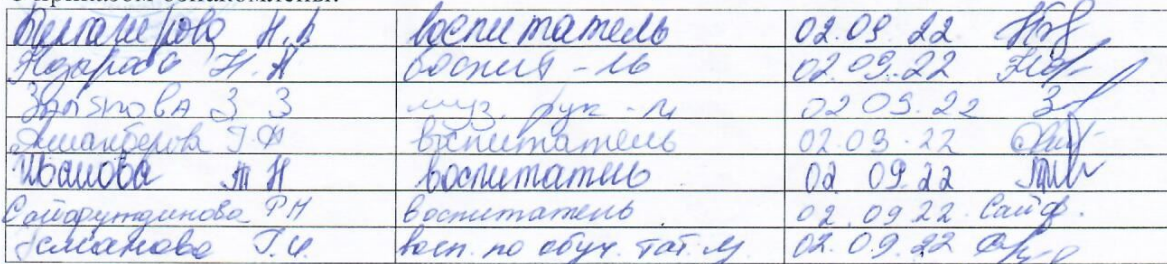 с приказом ознакомлены:
Н.А воспитатель 02.09.22
Назарова Н.А воспит-ль 02.09.22
Заляпова З З муз. рук-ль 02 09.22
Г.Ф воспитатель 02.09.22
Иванова Т Н воспитатель 02 09.22
Сайфутдинова Р Н воспитатель 02.09.22 Сайф.
Усманова Г.И. восп. по обуч. тат. яз 02.09.22